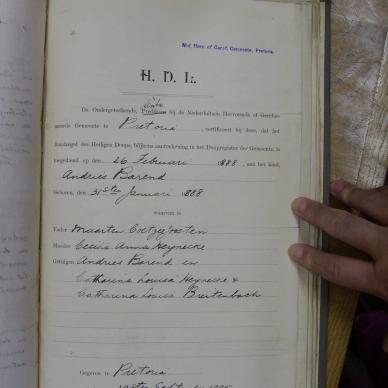 Ned. Herv. of Geref. Gemeente, Pretoria.
H. D. L.
De Ondergeteekende, bij de Nederduitsch Hervormde of Gerefor-
meerde Gemeente te Pretoria, certificeert bij deze, dat het
Bondzegel des Heiligen Doops, blijkens aanteekening in het Doopregister der Gemeente, is
toegediend op den 26 Februari 1888, aan het kind,
Andries Barend
Geboren, den 31ster Januari 1888
WAARVAN IS
Vader Maarten
Moeder Cecilia Anna Heynecke
Getuigen Andries Barend en
Catharina Louisa Heynecke &
Catharina Louisa Breitenbach
Gegeven te Pretoria